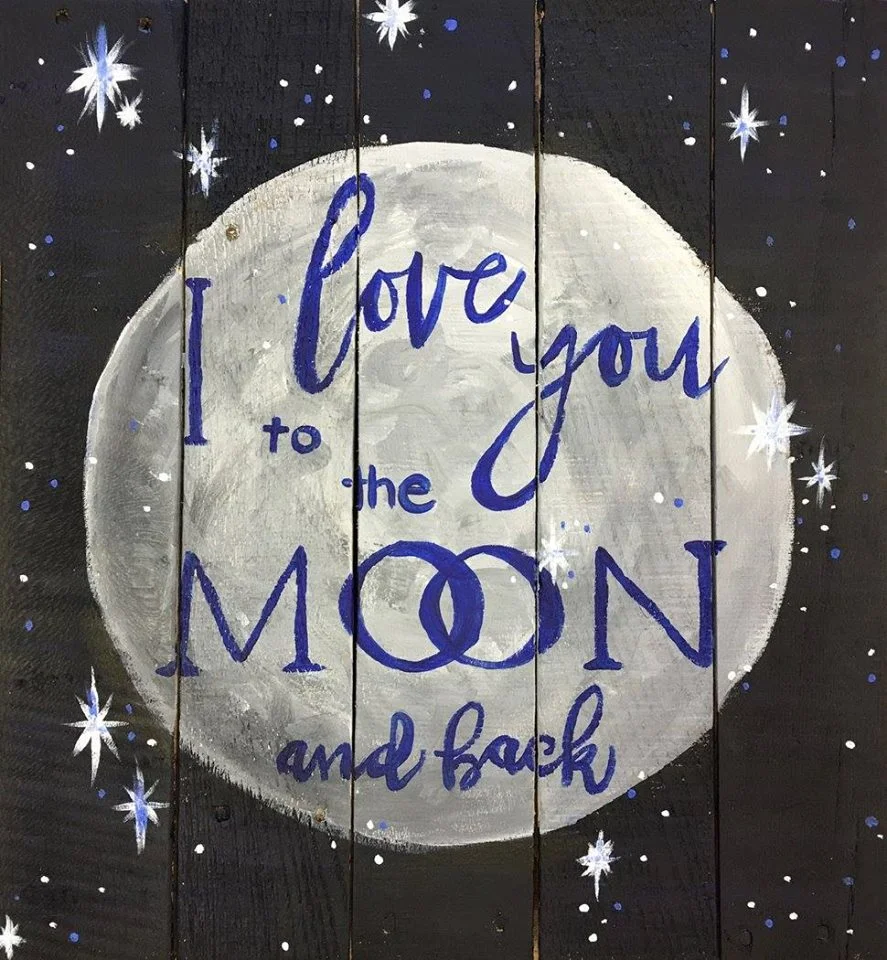 I love you
to
the
MOON
and back